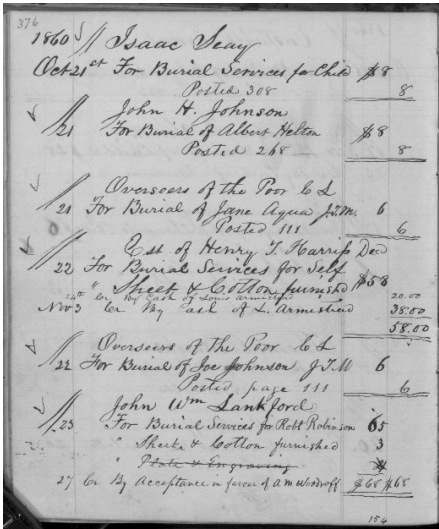 376
1860 Isaac Seay
Oct 21st For Burial Services for Child $8
Posted 308 8
John H. Johnson
21 For Burial of Albert Helton $8
Posted 268 8
Overseers of the Poor C L
21 For Burial of Jane Aqua J.T.M. 6
Posted 111 6
Est of Henry T. Harriss Decd
22 For Burial Services for Self
" Sheet & Cotton furnished $58
24th Cr By Cash of Louis Armistead 20.00
Nov 3 Cr By Cash of L. Armistead 38.00
58.00
Overseers of the Poor C L
22 For Burial of Joe Johnson J.T.M 6
Posted page 111 6
John Wm Lankford
23 For Burial Services for Robt Robinson 65
" Sheet & Cotton furnished 3
" Plate & Engraving
27 Cr By Acceptance in favor of A M Woodroff $68 $68
154